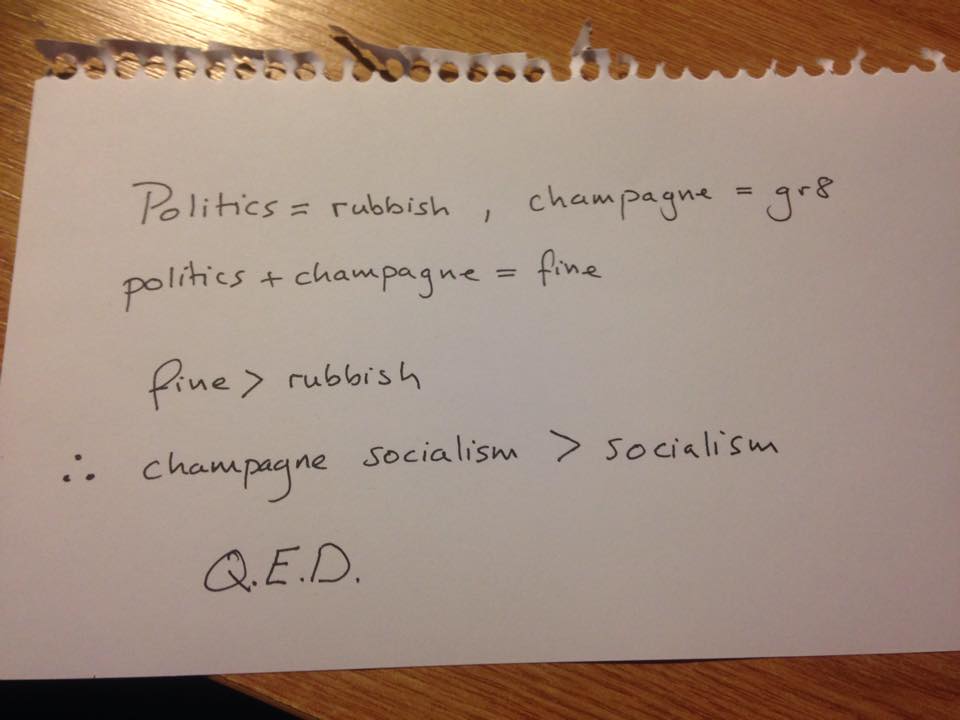 Politics = rubbish , champagne = gr8
politics + champagne = fine
fine > rubbish
∴ champagne socialism > socialism
Q.E.D.